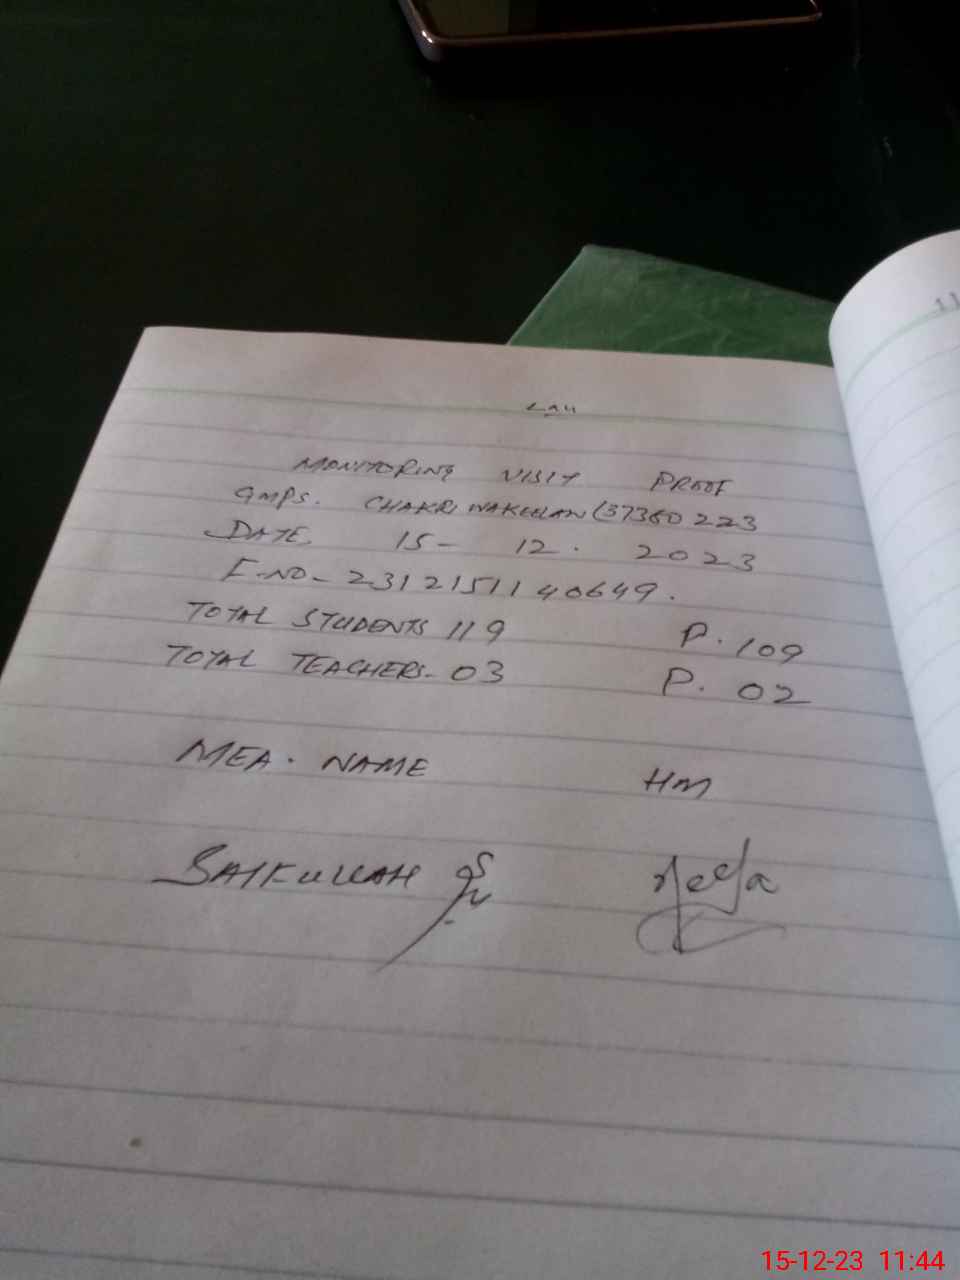 MONITORING VISIT PROOF
GMPS. CHAKRI WAKEELAN (37360223
DATE. 15- 12. 2023
F-NO- 2312151140649.
TOTAL STUDENTS 119 P. 109
TOTAL TEACHERS- 03 P. 02
MEA. NAME HM
SAIFULLAH
15-12-23 11:44